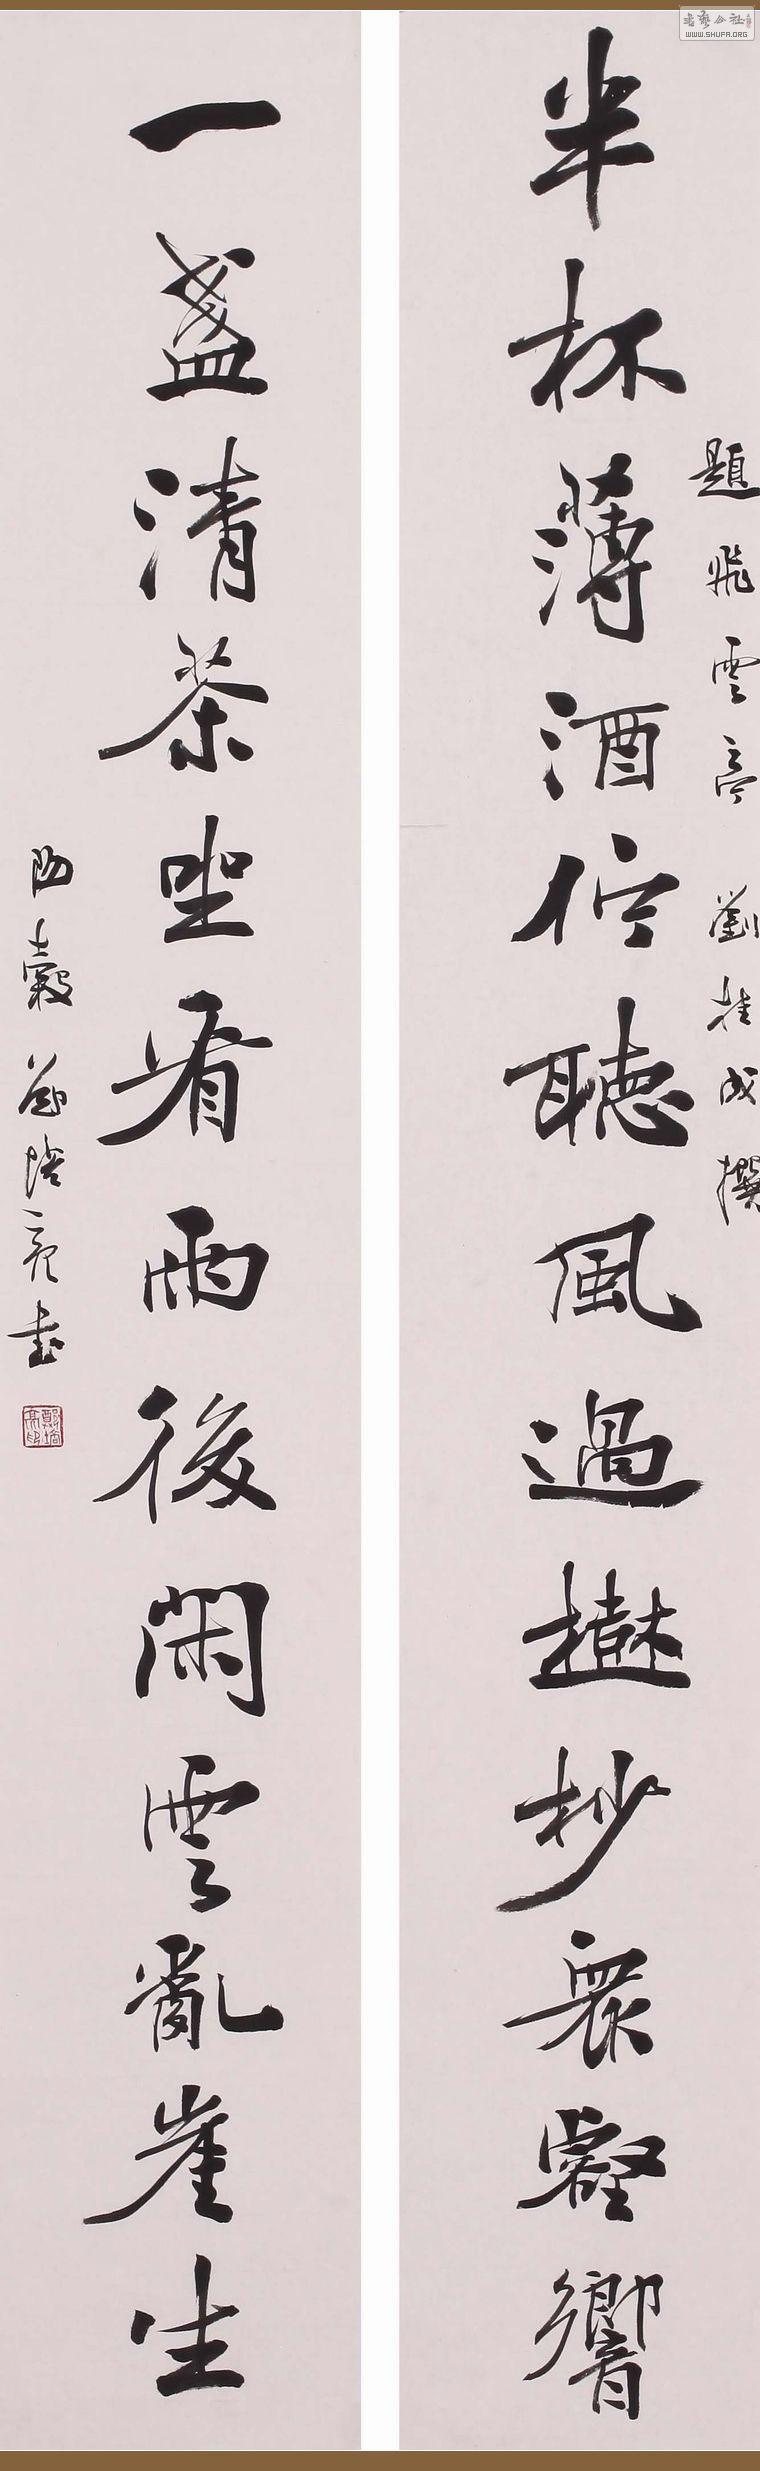 書藝公社
WWW.SHUFA.ORG
題飛雲亭 劉桂成撰
半杯薄酒佇聽風過樹杪眾壑響
一盞清茶坐看雨後閑雲亂崖生
陽穀鄭培亮書